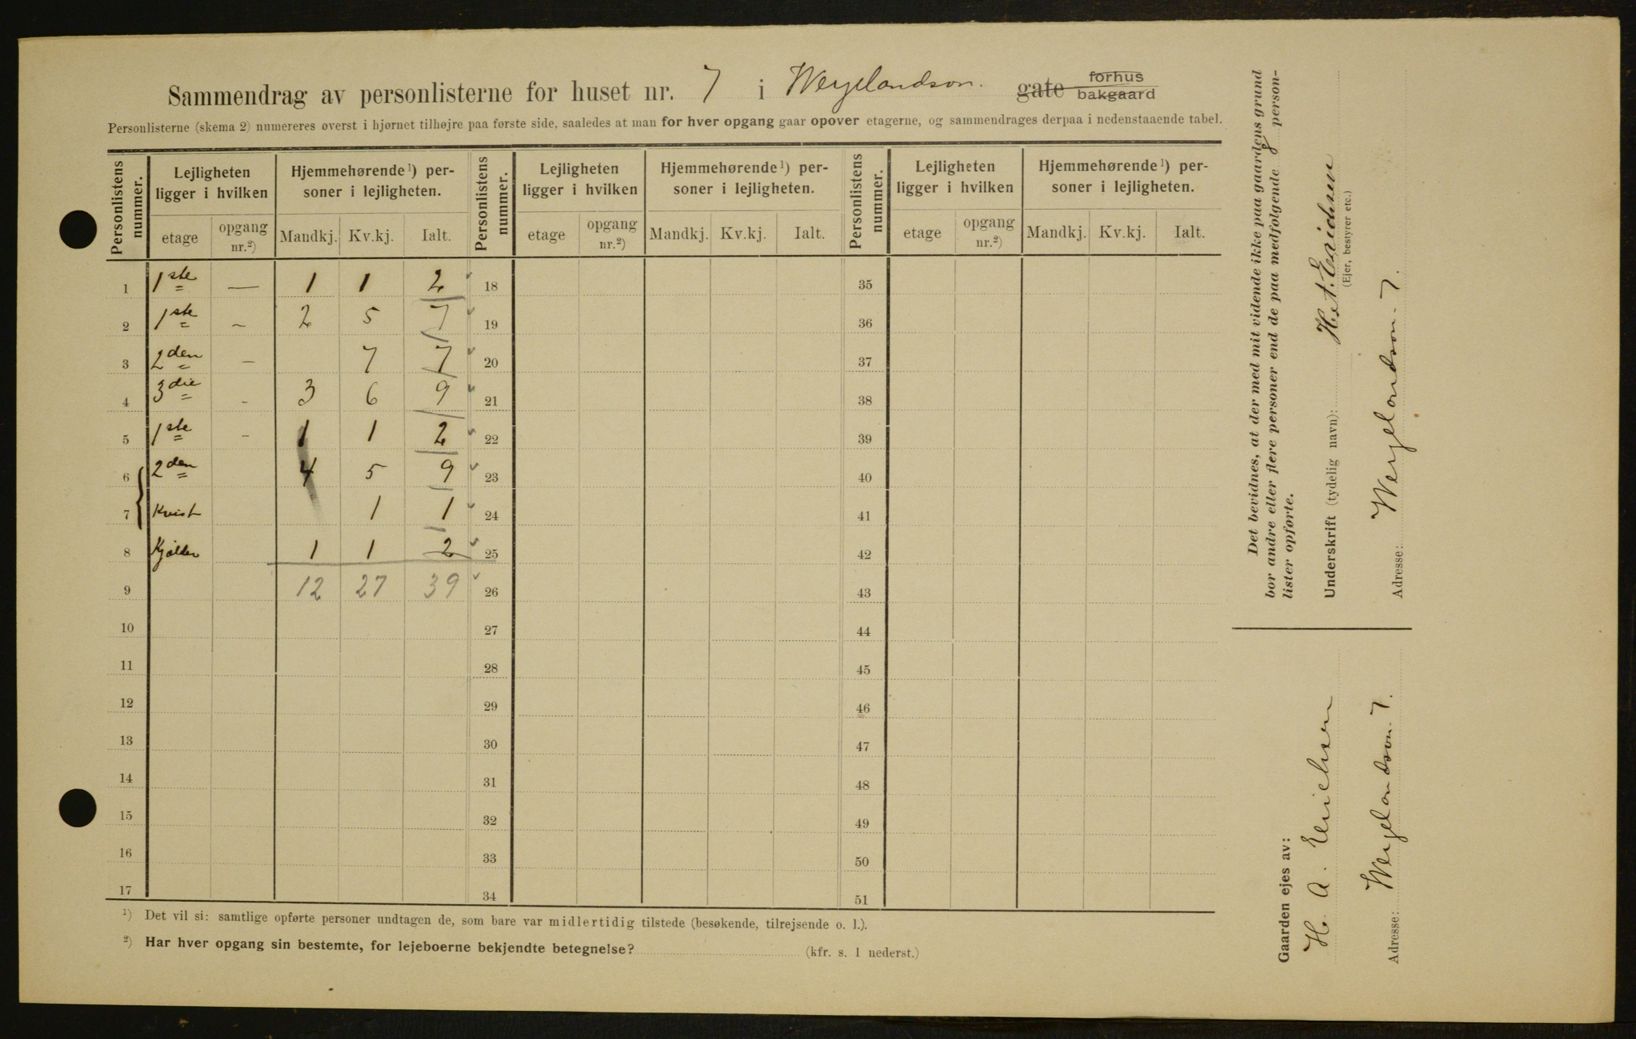 Sammendrag av personlisterne for huset nr. 7 i Wergelandsvn. gate forhus bakgaard
Personlisterne (skema 2) numereres øverst i hjørnet tilhøjre paa første side, saaledes at man for hver opgang gaar opover etagerne, og sammendrages derpaa i nedenstaaende tabel.
Personlistens nummer. Lejligheten ligger i hvilken Hjemmehørende ¹) personer i lejligheten. Personlistens nummer. Lejligheten ligger i hvilken Hjemmehørende ¹) personer i lejligheten. Personlistens nummer. Lejligheten ligger i hvilken Hjemmehørende ¹) personer i lejligheten.
etage opgang nr.²) Mandkj. Kv.kj. Ialt. etage opgang nr.²) Mandkj. Kv.kj. Ialt. etage opgang nr.²) Mandkj. Kv.kj. Ialt.
1 1ste — 1 1 2 18 35
2 1ste - 2 5 7 19 36
3 2den - 7 7 20 37
4 3die - 3 6 9 21 38
5 1ste - 1 1 2 22 39
6 2den 4 5 9 23 40
7 Kvist 1 1 24 41
8 Kjælder 1 1 2 25 42
9 12 27 39 26 43
10 27 44
11 28 45
12 29 46
13 30 47
14 31 48
15 32 49
16 33 50
17 34 51
¹) Det vil si: samtlige opførte personer undtagen de, som bare var midlertidig tilstede (besøkende, tilrejsende o. l.).
²) Har hver opgang sin bestemte, for lejeboerne bekjendte betegnelse? (kfr. s. 1 nederst.)
Det bevidnes, at der med mit vidende ikke paa gaardens grund
bor andre eller flere personer end de paa medfølgende 8 person-
lister opførte.
Underskrift (tydelig navn): H. A. Erichsen
(Ejer, bestyrer etc.)
Adresse: Wergelandsvn. 7.
Gaarden ejes av:
H. A. Erichsen
Adresse: Wergelandsvn. 7.